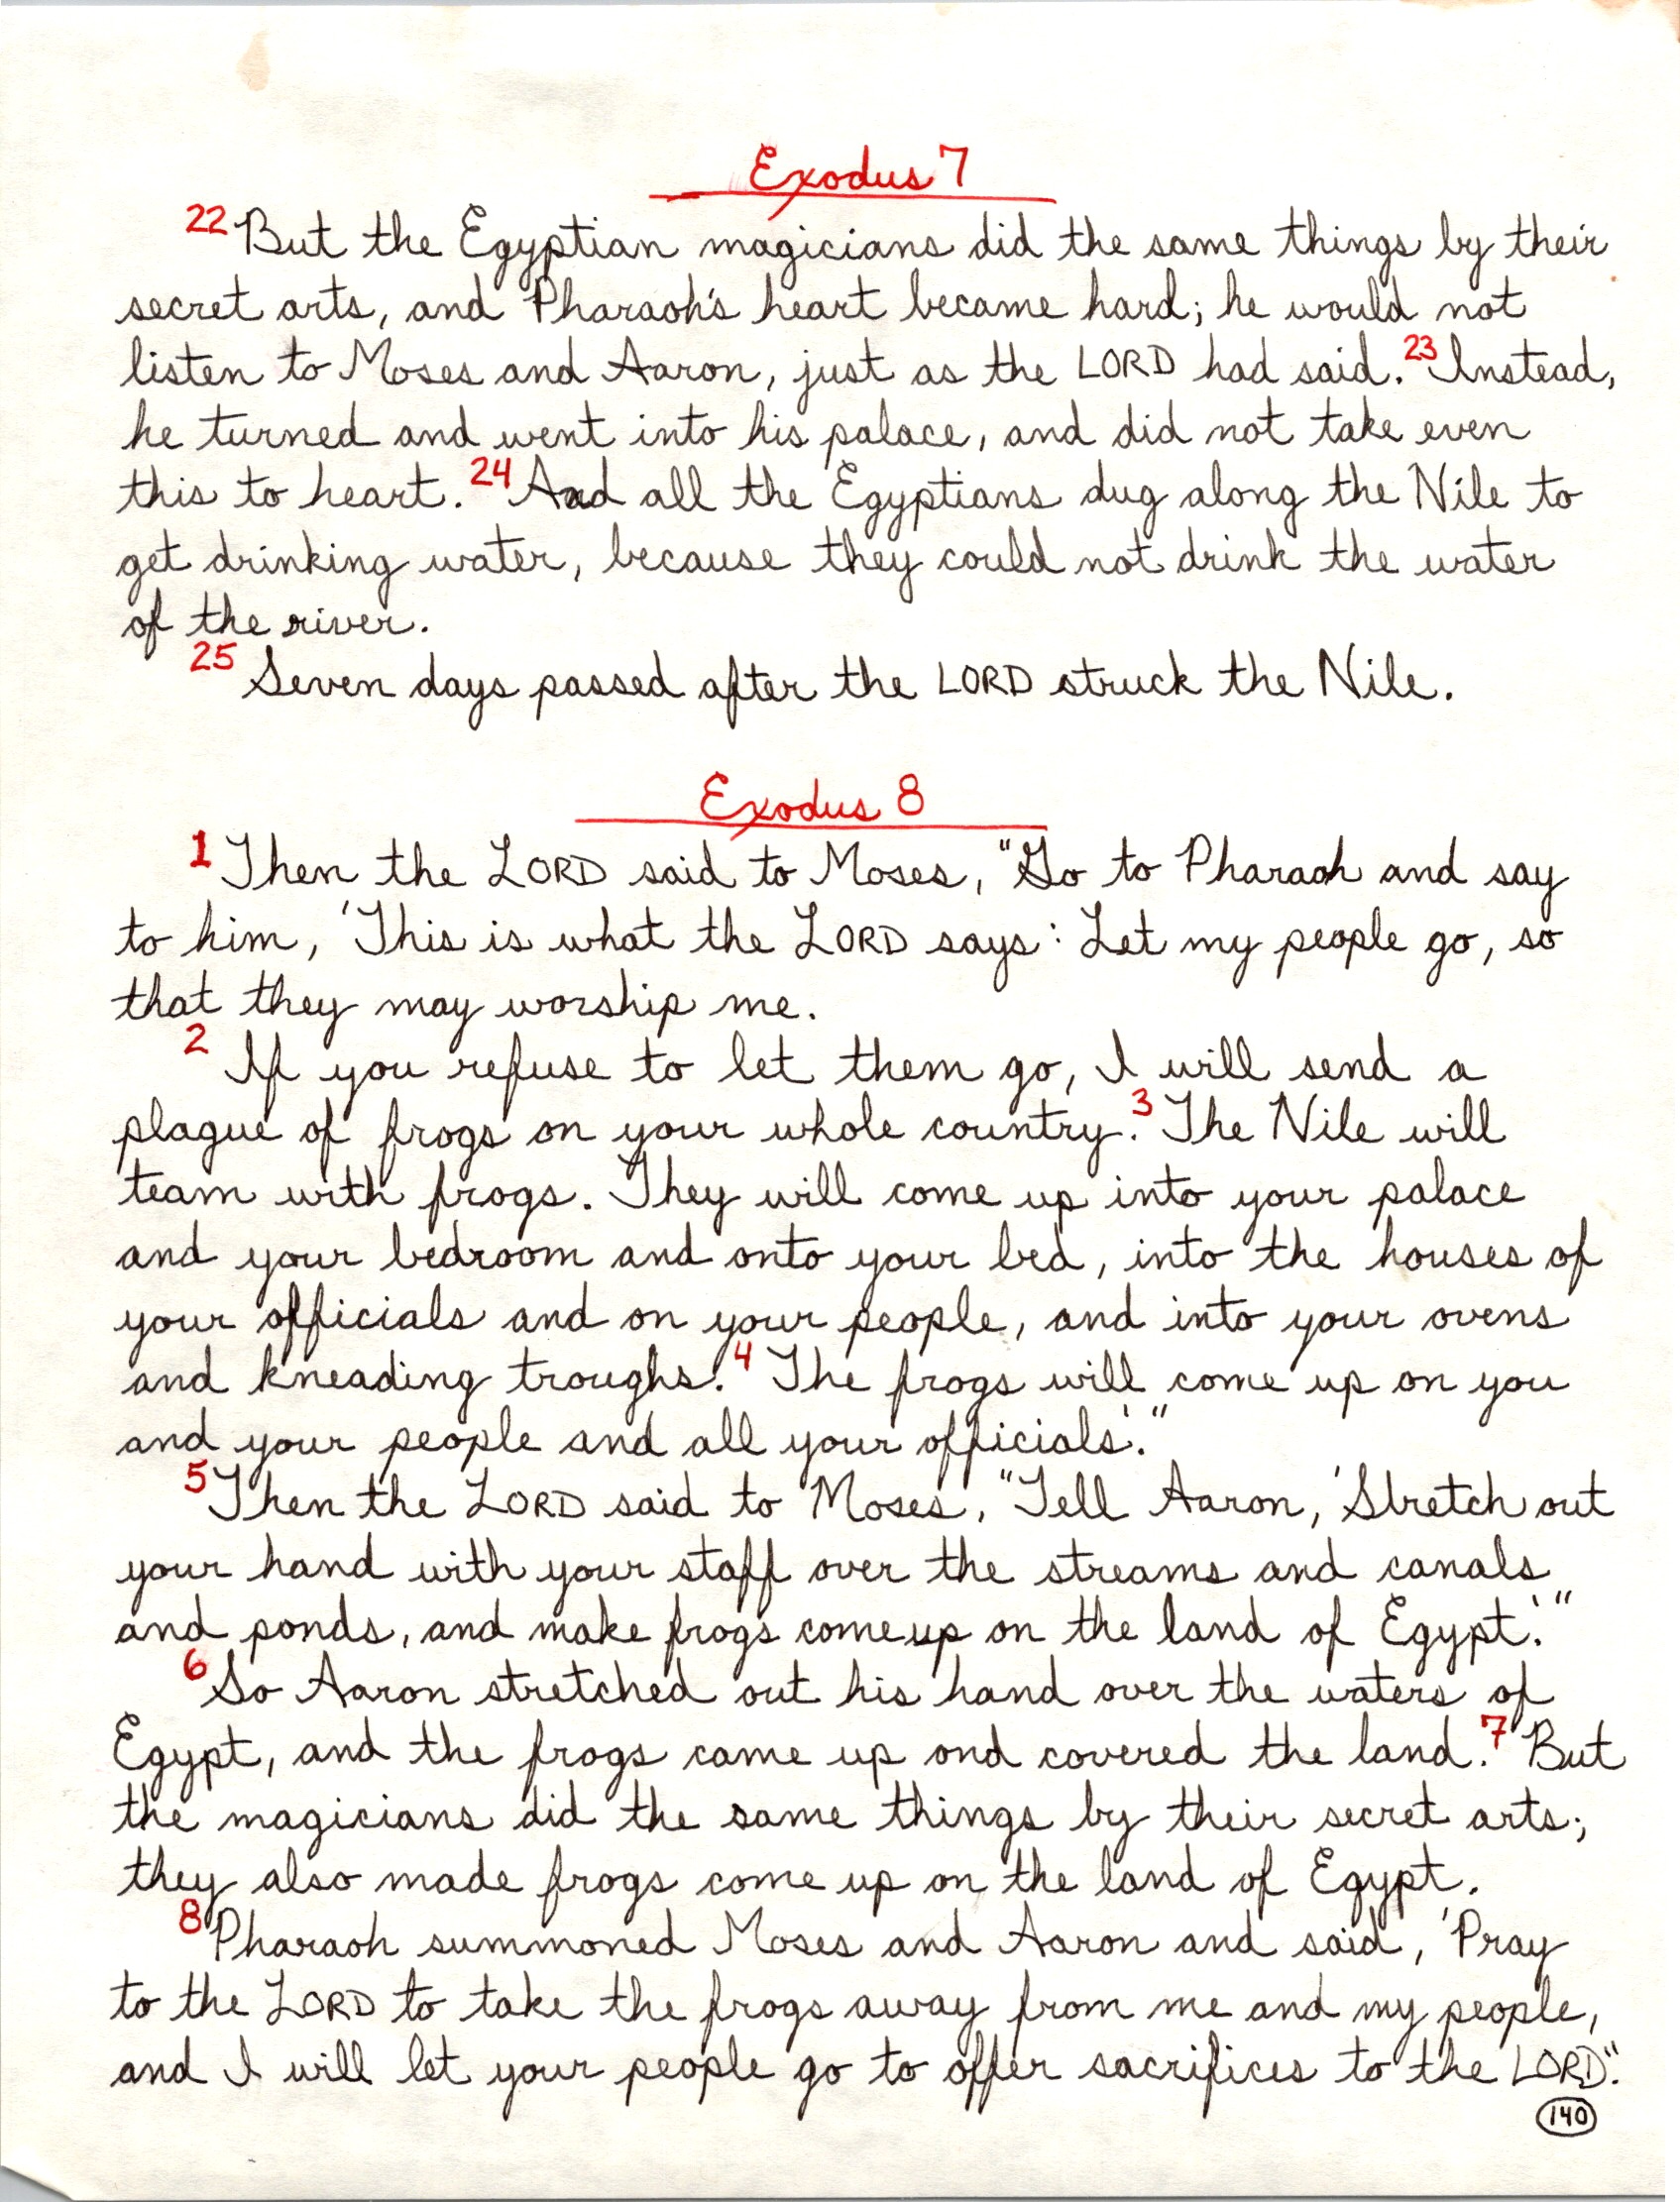 Exodus 7
22 But the Egyptian magicians did the same things by their
secret arts, and Pharaoh's heart became hard; he would not
listen to Moses and Aaron, just as the LORD had said. 23 Instead,
he turned and went into his palace, and did not take even
this to heart. 24 And all the Egyptians dug along the Nile to
get drinking water, because they could not drink the water
of the river.
25 Seven days passed after the LORD struck the Nile.
Exodus 8
1 Then the LORD said to Moses, "Go to Pharaoh and say
to him, 'This is what the LORD says: Let my people go, so
that they may worship me.
2 If you refuse to let them go, I will send a
plague of frogs on your whole country. 3 The Nile will
team with frogs. They will come up into your palace
and your bedroom and onto your bed, into the houses of
your officials and on your people, and into your ovens
and kneading troughs. 4 The frogs will come up on you
and your people and all your officials.'"
5 Then the LORD said to Moses, "Tell Aaron, 'Stretch out
your hand with your staff over the streams and canals
and ponds, and make frogs come up on the land of Egypt.'"
6 So Aaron stretched out his hand over the waters of
Egypt, and the frogs came up and covered the land. 7 But
the magicians did the same things by their secret arts;
they also made frogs come up on the land of Egypt.
8 Pharaoh summoned Moses and Aaron and said, 'Pray
to the LORD to take the frogs away from me and my people,
and I will let your people go to offer sacrifices to the LORD."
140